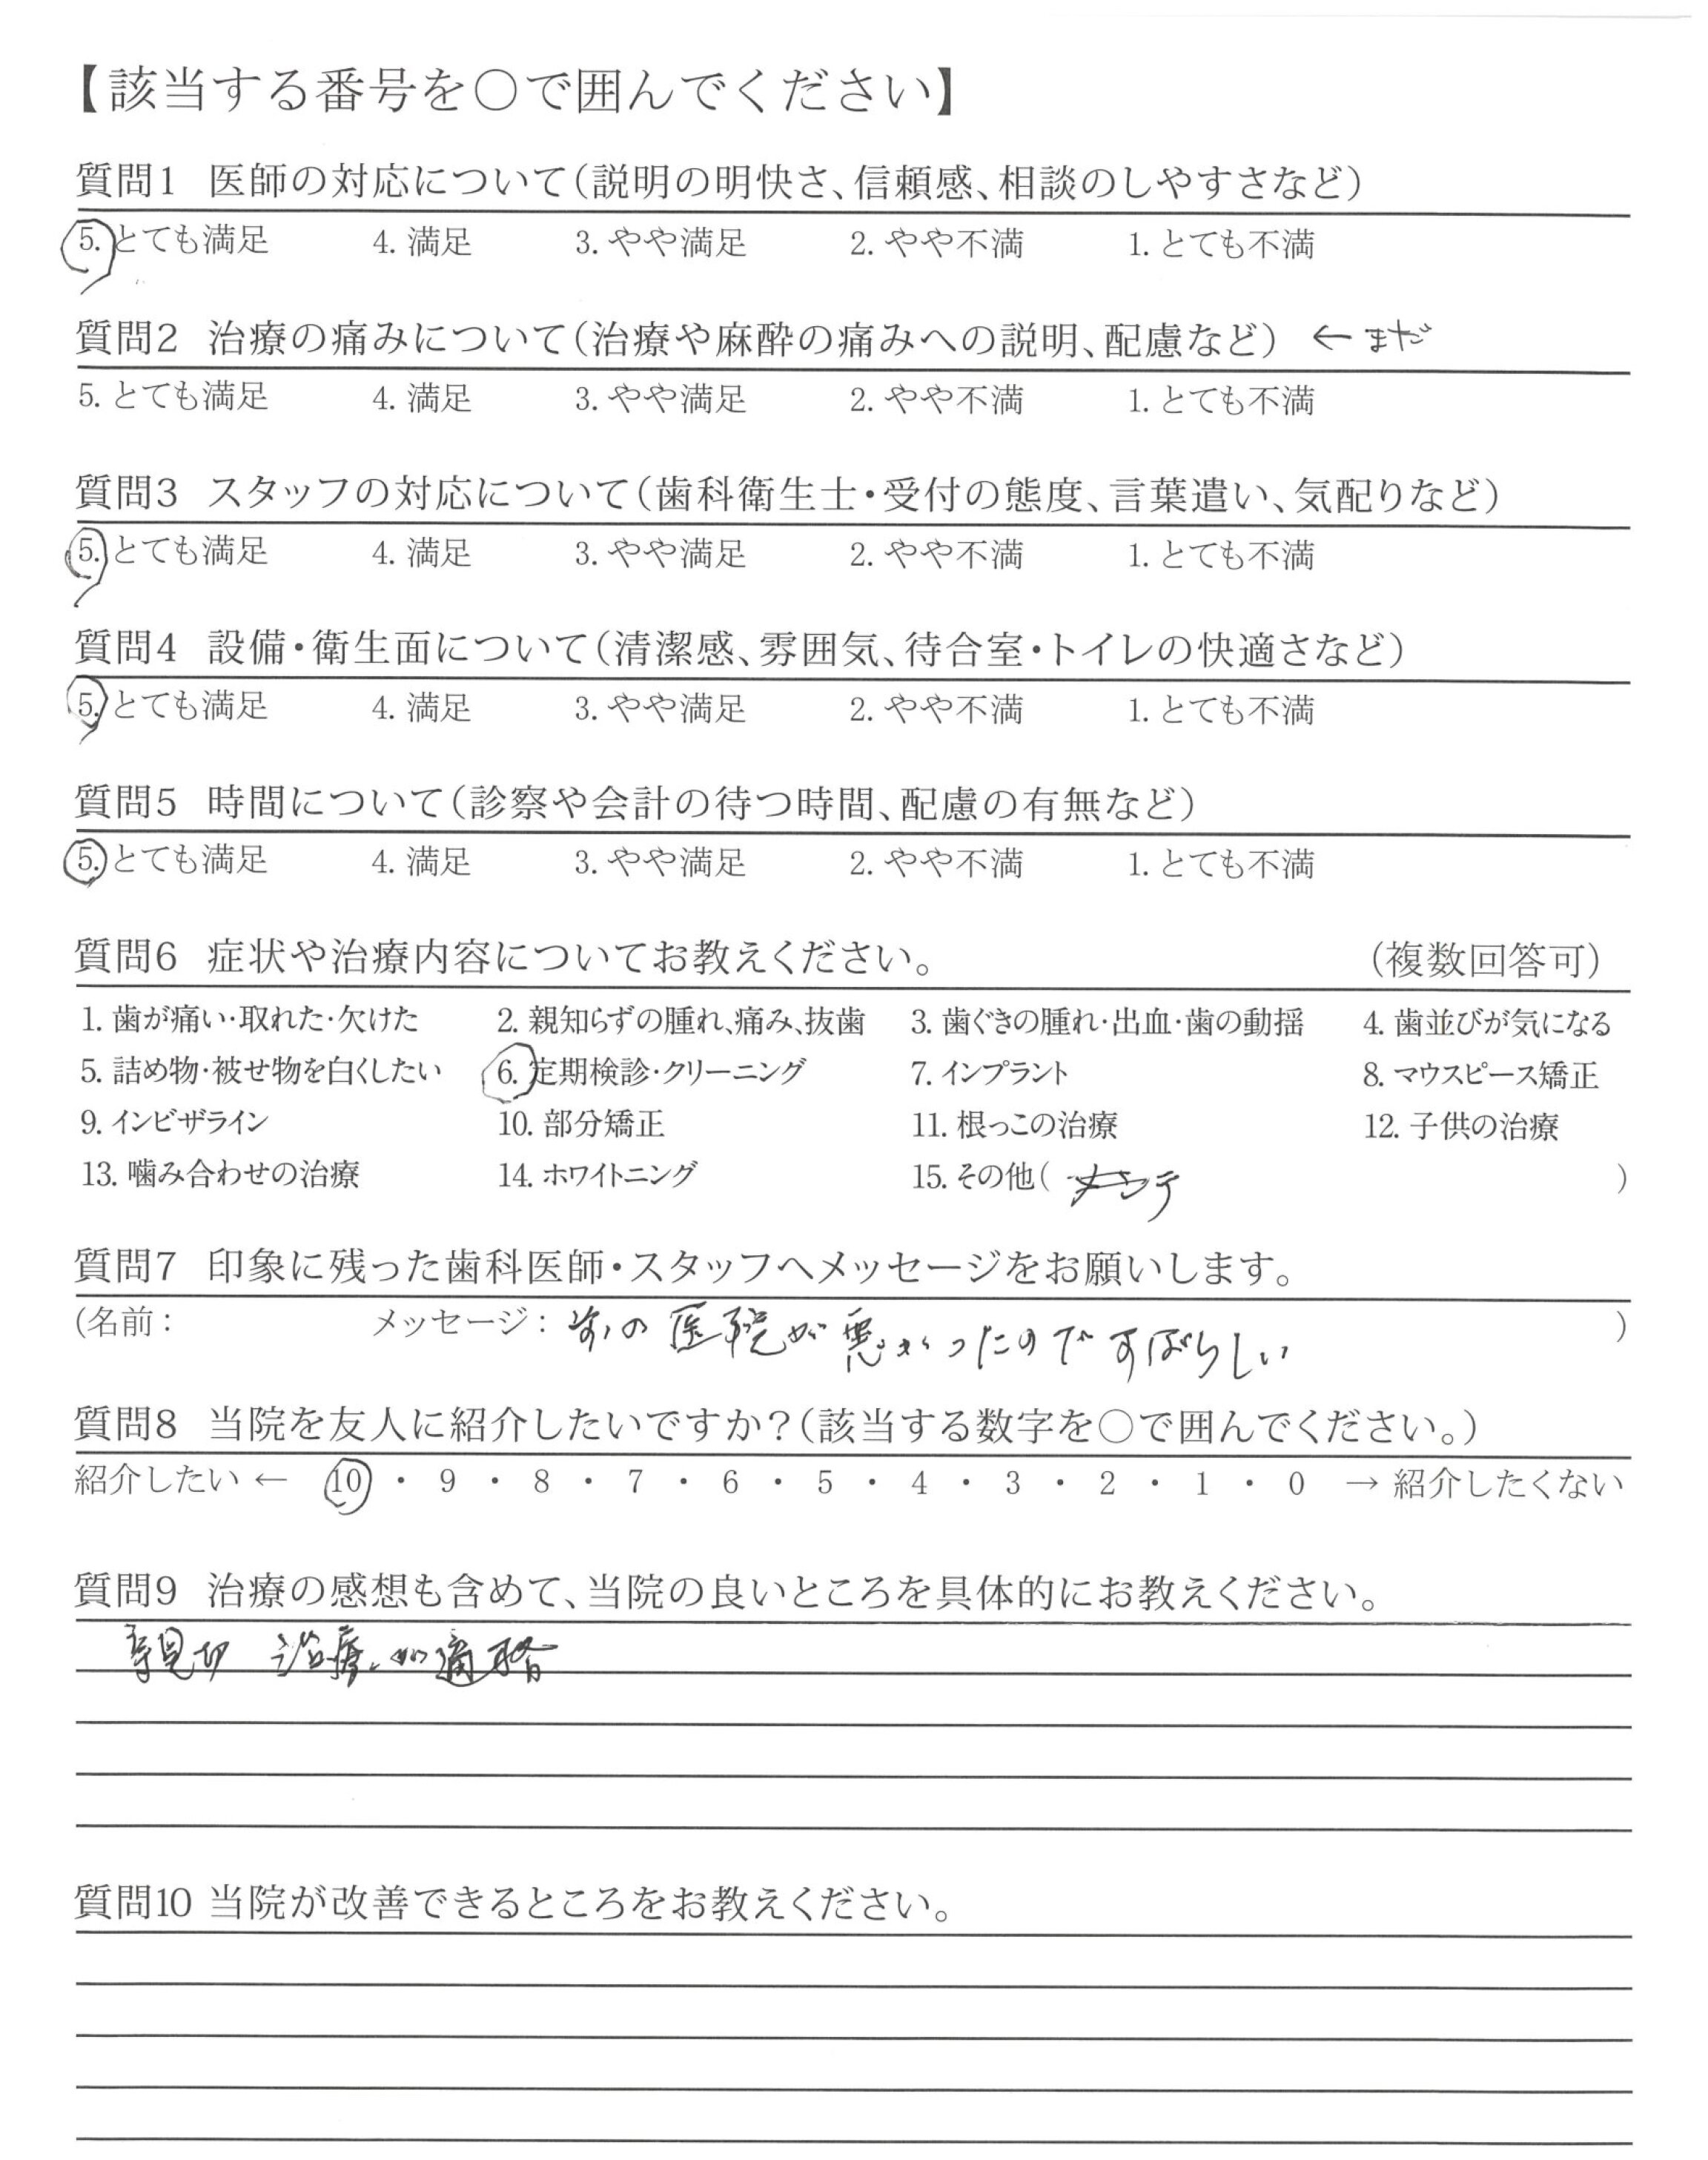 【該当する番号を○で囲んでください】
質問1 医師の対応について(説明の明快さ、信頼感、相談のしやすさなど)
5. とても満足 4. 満足 3. やや満足 2. やや不満 1. とても不満
質問2 治療の痛みについて(治療や麻酔の痛みへの説明、配慮など) ← まだ
5. とても満足 4. 満足 3. やや満足 2. やや不満 1. とても不満
質問3 スタッフの対応について(歯科衛生士・受付の態度、言葉遣い、気配りなど)
5. とても満足 4. 満足 3. やや満足 2. やや不満 1. とても不満
質問4 設備・衛生面について(清潔感、雰囲気、待合室・トイレの快適さなど)
5. とても満足 4. 満足 3. やや満足 2. やや不満 1. とても不満
質問5 時間について(診察や会計の待つ時間、配慮の有無など)
5. とても満足 4. 満足 3. やや満足 2. やや不満 1. とても不満
質問6 症状や治療内容についてお教えください。 (複数回答可)
1. 歯が痛い・取れた・欠けた 2. 親知らずの腫れ、痛み、抜歯 3. 歯ぐきの腫れ・出血・歯の動揺 4. 歯並びが気になる
5. 詰め物・被せ物を白くしたい 6. 定期検診・クリーニング 7. インプラント 8. マウスピース矯正
9. インビザライン 10. 部分矯正 11. 根っこの治療 12. 子供の治療
13. 噛み合わせの治療 14. ホワイトニング 15. その他( メンテ )
質問7 印象に残った歯科医師・スタッフへメッセージをお願いします。
(名前: メッセージ: 前の医院が悪かったのですばらしい )
質問8 当院を友人に紹介したいですか?(該当する数字を○で囲んでください。)
紹介したい ← 10 ・ 9 ・ 8 ・ 7 ・ 6 ・ 5 ・ 4 ・ 3 ・ 2 ・ 1 ・ 0 → 紹介したくない
質問9 治療の感想も含めて、当院の良いところを具体的にお教えください。
親切 治療が適格
質問10 当院が改善できるところをお教えください。